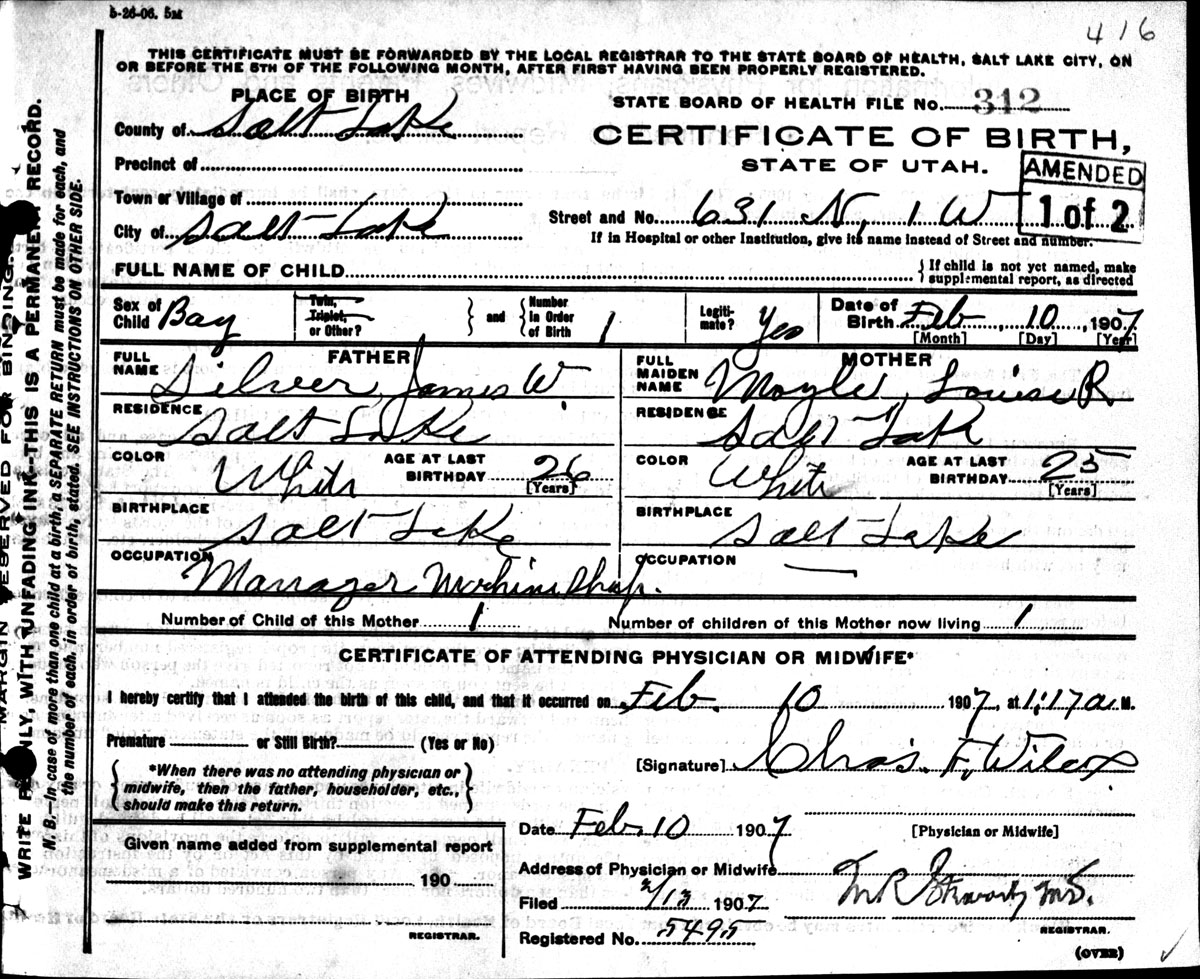 5-26-06. 5M
416
THIS CERTIFICATE MUST BE FORWARDED BY THE LOCAL REGISTRAR TO THE STATE BOARD OF HEALTH, SALT LAKE CITY, ON
OR BEFORE THE 5TH OF THE FOLLOWING MONTH, AFTER FIRST HAVING BEEN PROPERLY REGISTERED.
PLACE OF BIRTH
STATE BOARD OF HEALTH FILE No. 312
County of Salt Lake
CERTIFICATE OF BIRTH,
Precinct of
STATE OF UTAH.
AMENDED
1 of 2
Town or Village of
City of Salt Lake
Street and No. 631 N, 1 W
If in Hospital or other Institution, give its name instead of Street and number.
FULL NAME OF CHILD
If child is not yet named, make
supplemental report, as directed
Sex of Child Boy
Twin, Triplet, or Other?
and
Number in Order of Birth 1
Legitimate? Yes
Date of Birth Feb, 10, 1907
[Month] [Day] [Year]
FATHER
MOTHER
FULL NAME Silver, James W.
FULL MAIDEN NAME Moyle, Louise R.
RESIDENCE Salt Lake
RESIDENCE Salt Lake
COLOR White AGE AT LAST BIRTHDAY 26 [Years]
COLOR White AGE AT LAST BIRTHDAY 25 [Years]
BIRTHPLACE Salt Lake
BIRTHPLACE Salt Lake
OCCUPATION Manager Machine Shop.
OCCUPATION —
Number of Child of this Mother 1
Number of children of this Mother now living 1
CERTIFICATE OF ATTENDING PHYSICIAN OR MIDWIFE*
I hereby certify that I attended the birth of this child, and that it occurred on Feb. 10 1907, at 1:17 a M.
Premature or Still Birth? (Yes or No)
*When there was no attending physician or
midwife, then the father, householder, etc.,
should make this return.
[Signature] Chas. F. Wilcox
Date Feb. 10 1907
[Physician or Midwife]
Given name added from supplemental report
190
REGISTRAR.
Address of Physician or Midwife
Filed 2/13 1907
M.D.
Registered No. 5495
REGISTRAR.
(OVER)
MARGIN RESERVED FOR BINDING.
WRITE PLAINLY, WITH UNFADING INK—THIS IS A PERMANENT RECORD.
N. B.—In case of more than one child at a birth, a SEPARATE RETURN must be made for each, and
the number of each, in order of birth, stated. SEE INSTRUCTIONS ON OTHER SIDE.